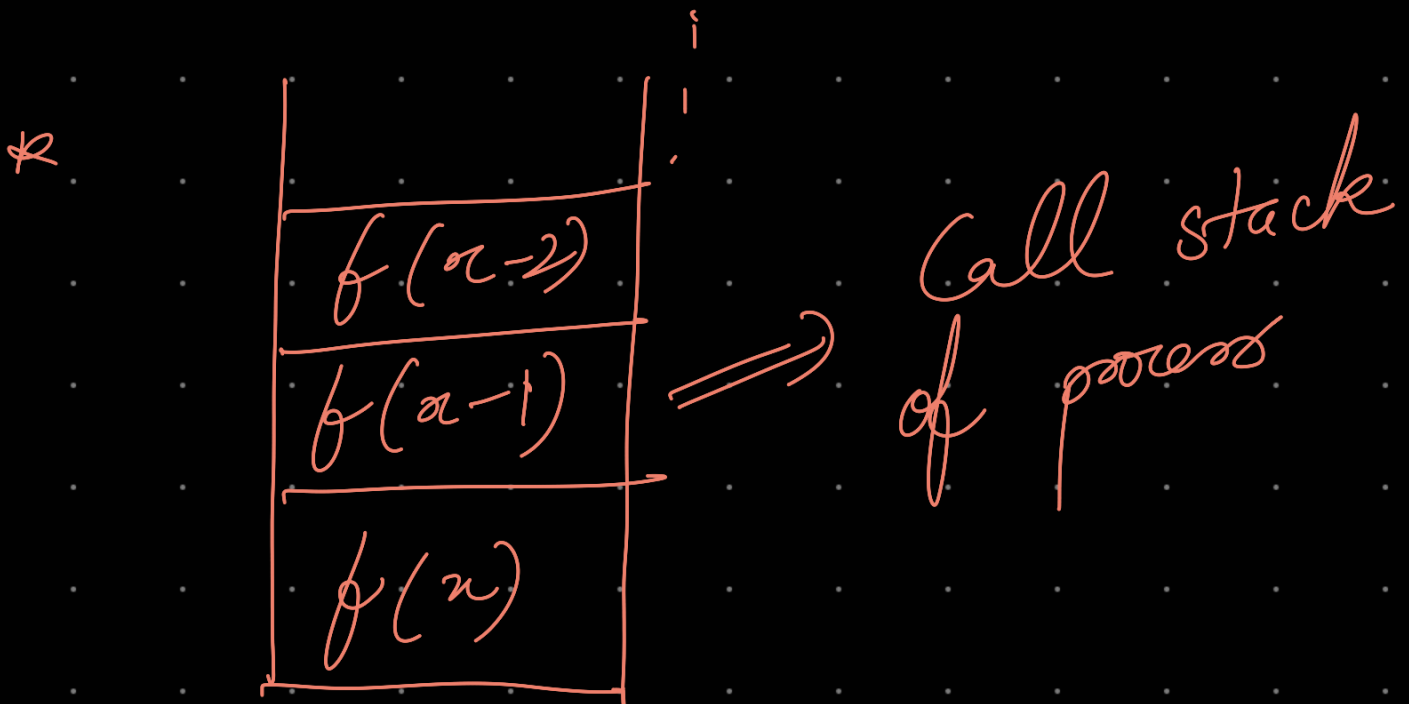 *
f(x-2)
f(x-1)
f(x)
⇒
Call stack
of process